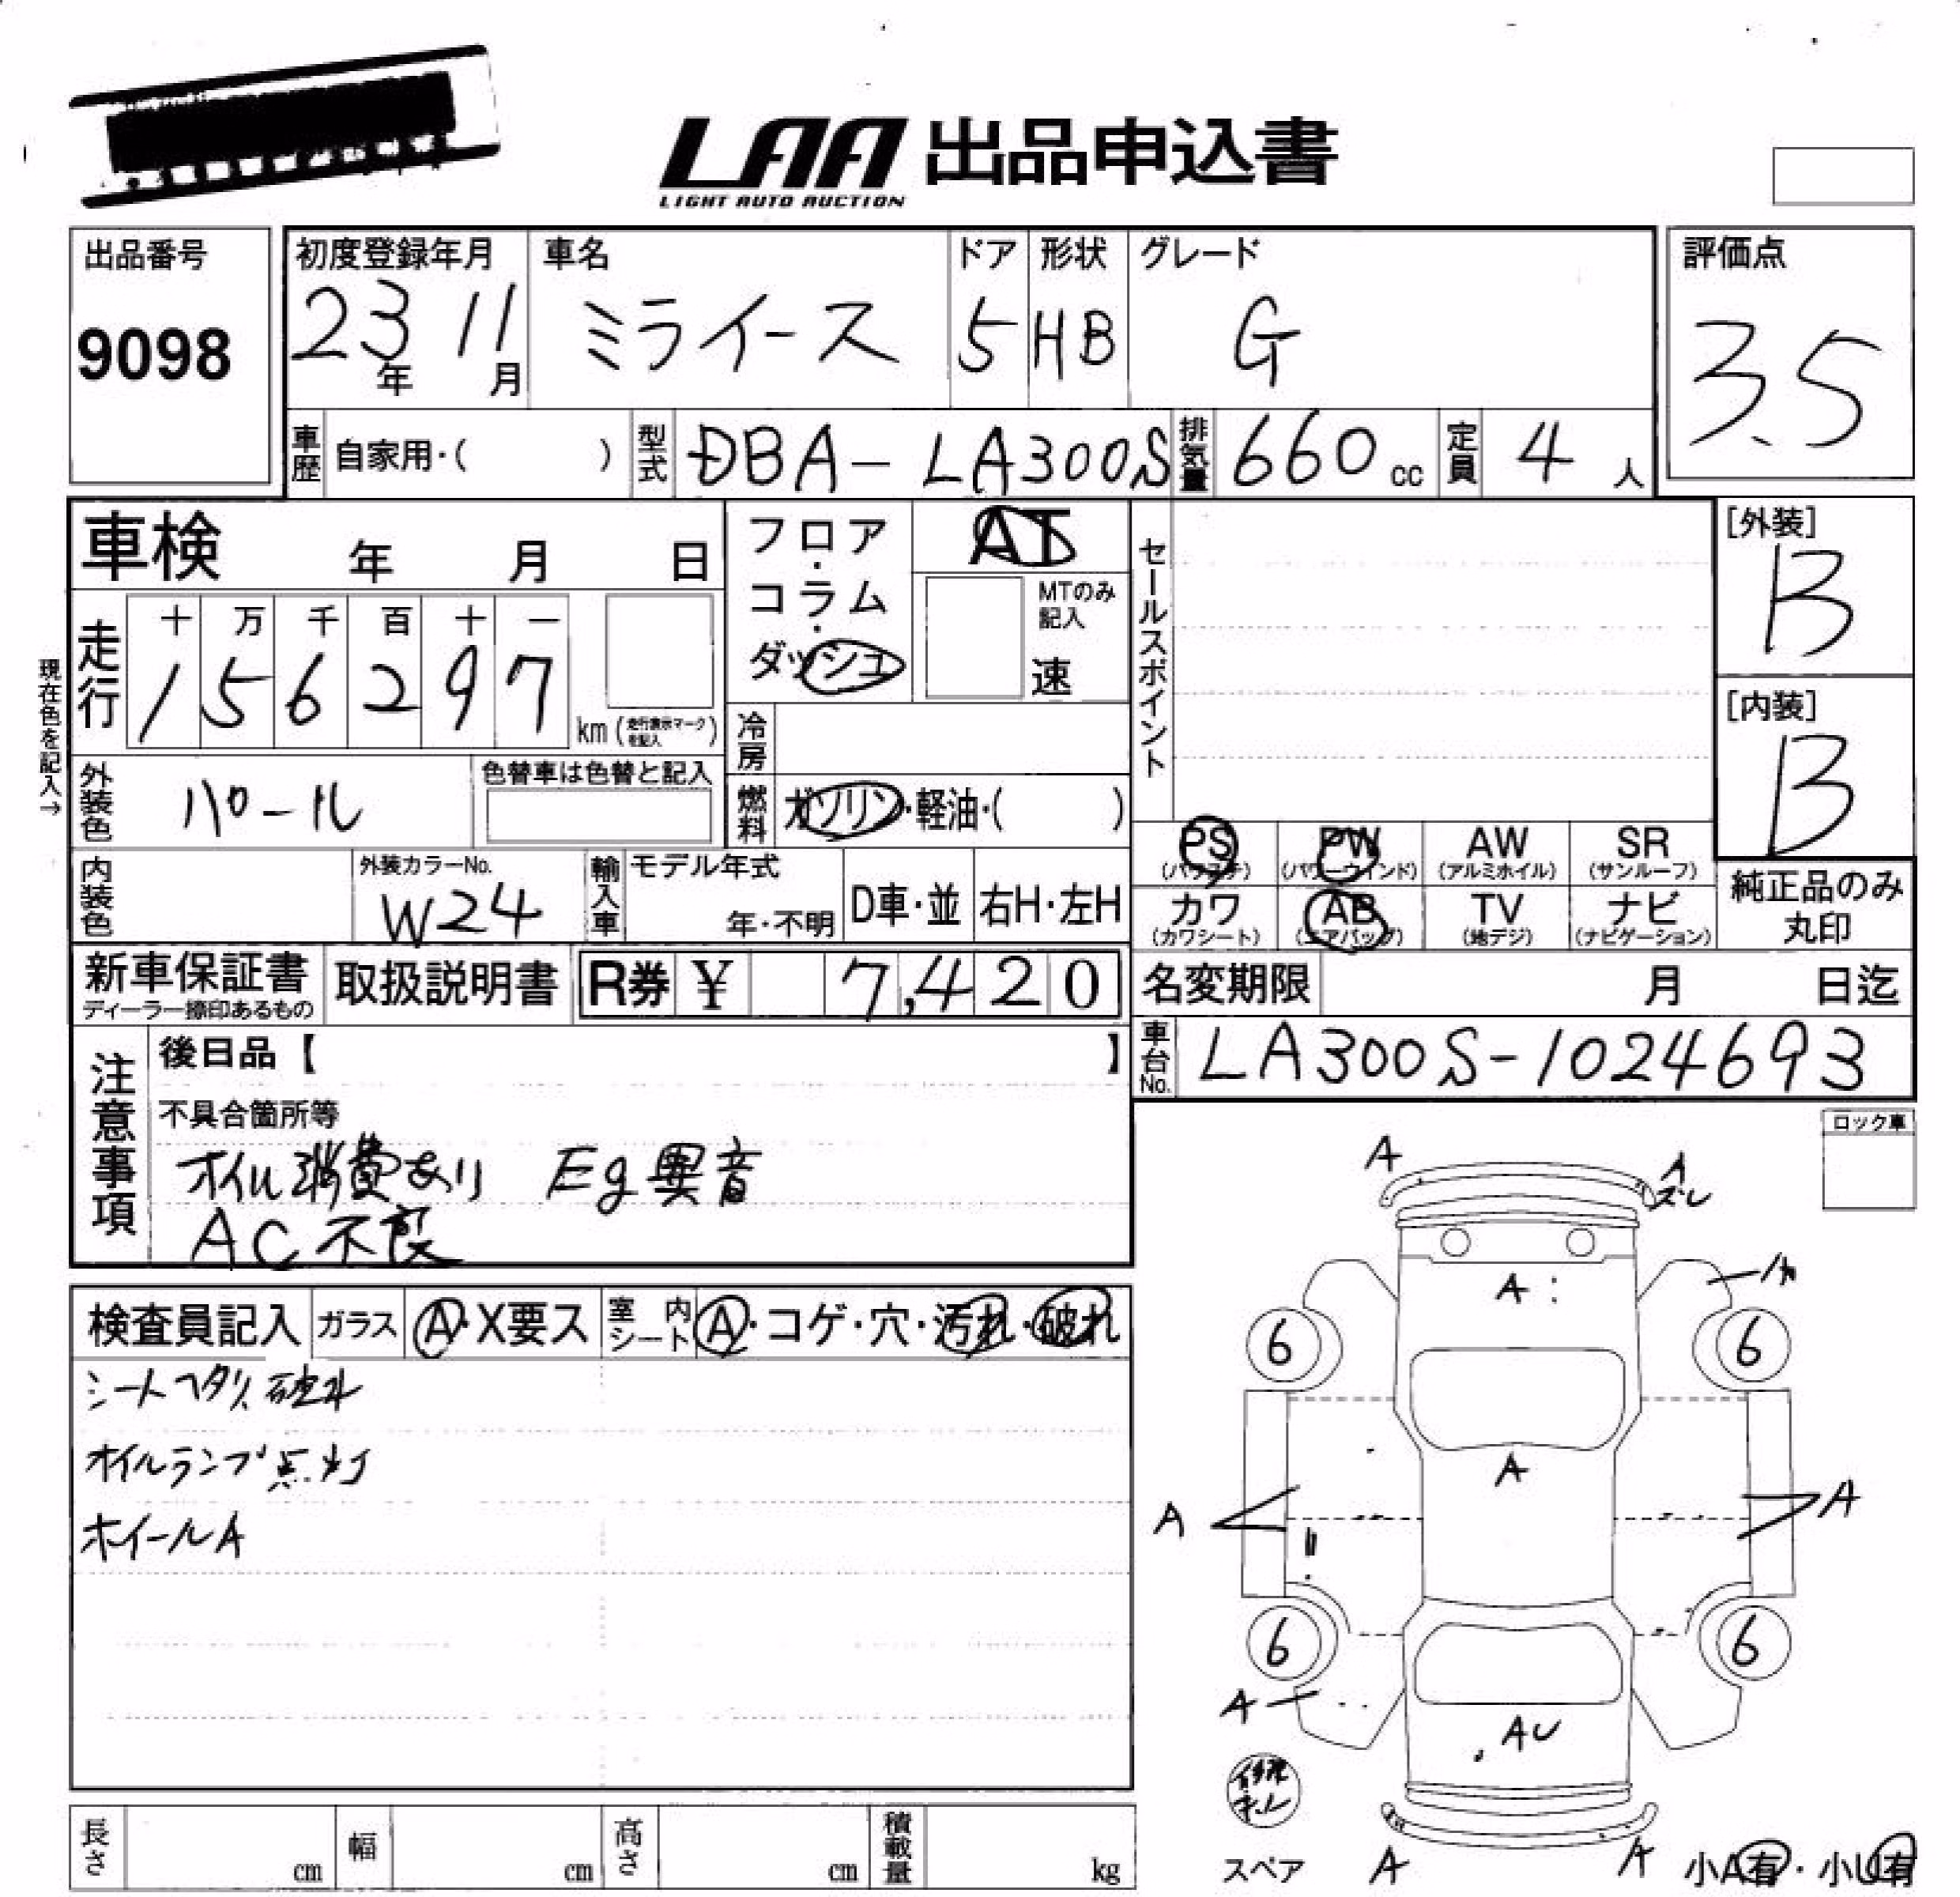 LAA 出品申込書
LIGHT AUTO AUCTION
出品番号
9098
初度登録年月
23年 11月
車名
ミライース
ドア
5
形状
HB
グレード
G
評価点
3.5
車歴 自家用・( )
型式 DBA-LA300S
排気量 660 cc
定員 4 人
車検 年 月 日
フロア・コラム・ダッシュ
AT
MTのみ記入
速
セールスポイント
[外装]
B
[内装]
B
現在色を記入→
走行
十 万 千 百 十 一
1 5 6 2 9 7
km (走行表示マークを記入)
冷房
外装色 パール
色替車は色替と記入
燃料 ガソリン・軽油・( )
PS (パワステ)
PW (パワーウインド)
AW (アルミホイル)
SR (サンルーフ)
カワ (カワシート)
AB (エアバッグ)
TV (地デジ)
ナビ (ナビゲーション)
純正品のみ丸印
内装色
外装カラーNo.
W24
輸入車
モデル年式
年・不明
D車・並
右H・左H
新車保証書
ディーラー捺印あるもの
取扱説明書
R券 ¥ 7,420
名変期限 月 日迄
車台No. LA300S-1024693
注意事項
後日品【 】
不具合箇所等
オイル消費あり Eg異音
AC不良
ロック車
A
A
ズレ
A
6
6
A
A
A
6
6
A
AU
A
A
検査員記入
ガラス A・X要ス
室内シート A・コゲ・穴・汚れ・破れ
シートヘタリ、破れ
オイルランプ点灯
ホイールA
長さ cm
幅 cm
高さ cm
積載量 kg
スペア
小A有・小U有